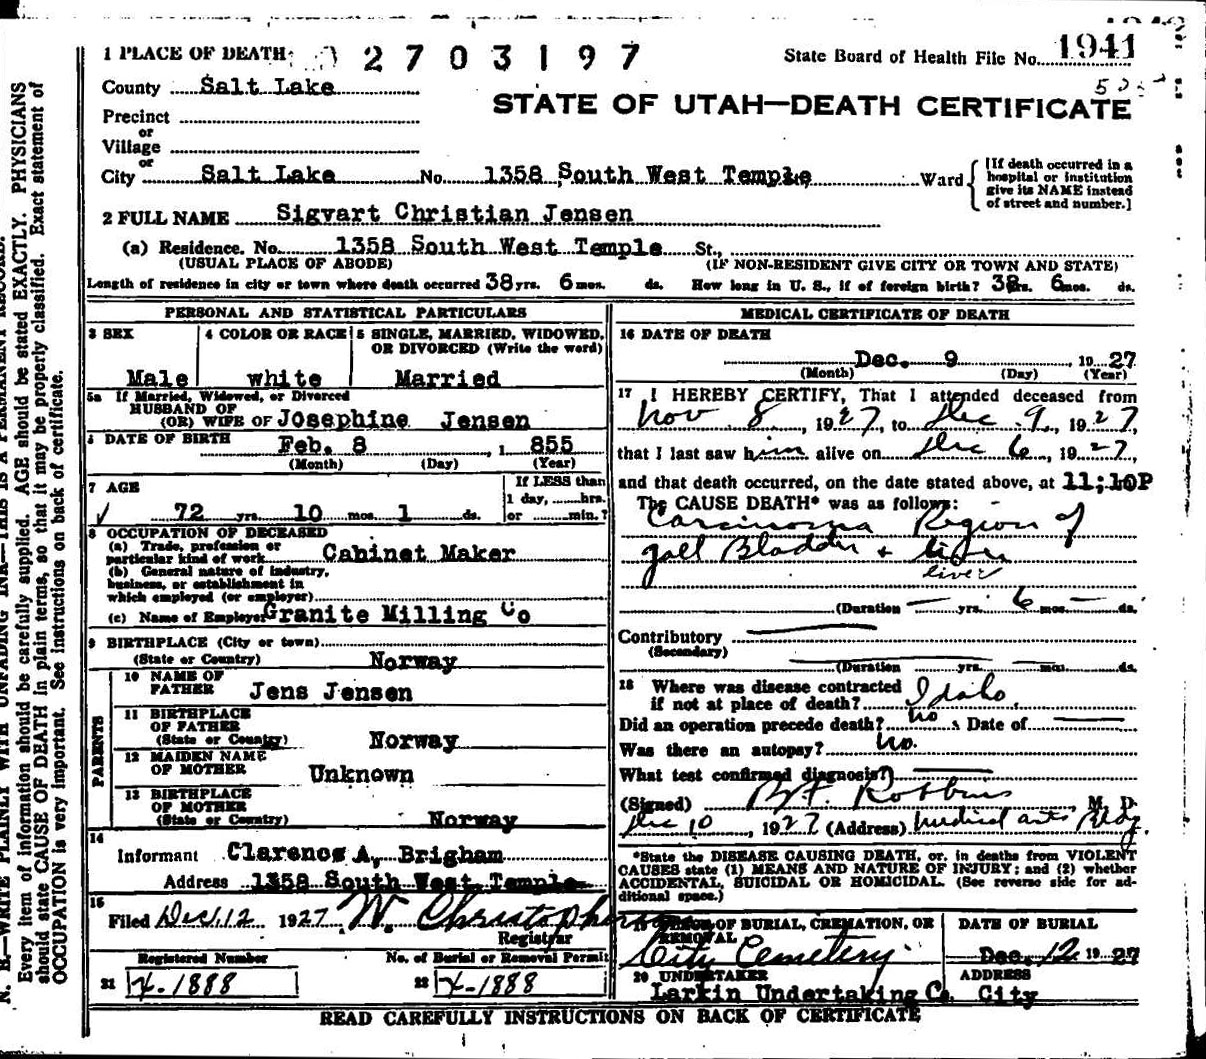 1941
1 PLACE OF DEATH: 2703197 State Board of Health File No. 1941
County Salt Lake
STATE OF UTAH—DEATH CERTIFICATE
Precinct
or
Village
or
City Salt Lake No. 1358 South West Temple Ward {[If death occurred in a hospital or institution give its NAME instead of street and number.]
2 FULL NAME Sigvart Christian Jensen
(a) Residence. No. 1358 South West Temple St.,
(USUAL PLACE OF ABODE) (IF NON-RESIDENT GIVE CITY OR TOWN AND STATE)
Length of residence in city or town where death occurred 38 yrs. 6 mos. ds. How long in U. S., if of foreign birth? 38 yrs. 6 mos. ds.
PERSONAL AND STATISTICAL PARTICULARS
3 SEX 4 COLOR OR RACE 5 SINGLE, MARRIED, WIDOWED,
OR DIVORCED (Write the word)
Male white Married
5a If Married, Widowed, or Divorced
HUSBAND OF
(OR) WIFE OF Josephine Jensen
6 DATE OF BIRTH Feb. 8, 1 855
(Month) (Day) (Year)
7 AGE If LESS than
1 day, hrs.
72 yrs. 10 mos. 1 ds. or min.?
8 OCCUPATION OF DECEASED
(a) Trade, profession or
particular kind of work Cabinet Maker
(b) General nature of industry,
business, or establishment in
which employed (or employer)
(c) Name of Employer Granite Milling Co
9 BIRTHPLACE (City or town)
(State or Country) Norway
PARENTS
10 NAME OF
FATHER Jens Jensen
11 BIRTHPLACE
OF FATHER
(State or Country) Norway
12 MAIDEN NAME
OF MOTHER Unknown
13 BIRTHPLACE
OF MOTHER
(State or Country) Norway
14
Informant Clarence A. Brigham
Address 1358 South West Temple
15
Filed Dec. 12 1927 W. Christopherson
Registrar
Registered Number No. of Burial or Removal Permit
21 X-1888 22 X-1888
MEDICAL CERTIFICATE OF DEATH
16 DATE OF DEATH
Dec. 9 19 27
(Month) (Day) (Year)
17 I HEREBY CERTIFY, That I attended deceased from
Nov 8, 1927, to Dec 9, 1927,
that I last saw him alive on Dec 6, 1927,
and that death occurred, on the date stated above, at 11;10P
The CAUSE DEATH* was as follows:
Carcinoma Region of
gall Bladder + liver
liver
(Duration — yrs. 6 mos — ds.
Contributory
(Secondary)
(Duration yrs. mos. ds.
18 Where was disease contracted
if not at place of death? Idaho
Did an operation precede death? no Date of
Was there an autopsy? No.
What test confirmed diagnosis?)
(Signed) Robbins M. D.
Dec 10, 1927 (Address) Medical arts Bldg.
*State the DISEASE CAUSING DEATH, or, in deaths from VIOLENT
CAUSES state (1) MEANS AND NATURE OF INJURY; and (2) whether
ACCIDENTAL, SUICIDAL OR HOMICIDAL. (See reverse side for ad-
ditional space.)
19 OF BURIAL, CREMATION, OR DATE OF BURIAL
REMOVAL
City Cemetery Dec. 12 19 27
20 UNDERTAKER ADDRESS
Larkin Undertaking Co. City
READ CAREFULLY INSTRUCTIONS ON BACK OF CERTIFICATE
N. B.—WRITE PLAINLY WITH UNFADING INK—THIS IS A PERMANENT RECORD.
Every item of information should be carefully supplied. AGE should be stated EXACTLY. PHYSICIANS
should state CAUSE OF DEATH in plain terms, so that it may be properly classified. Exact statement of
OCCUPATION is very important. See instructions on back of certificate.